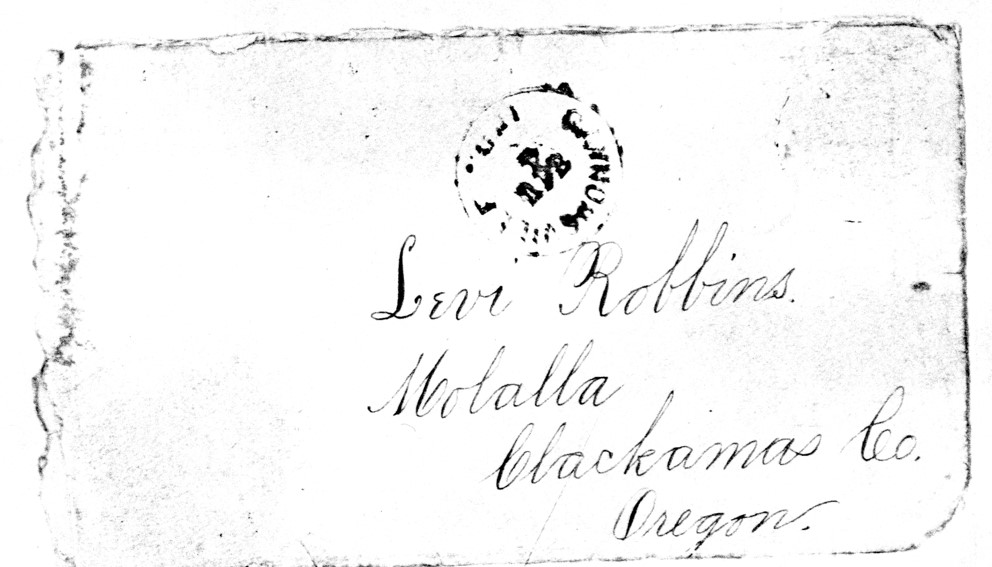 Levi Robbins.
Molalla
Clackamas Co.
Oregon.